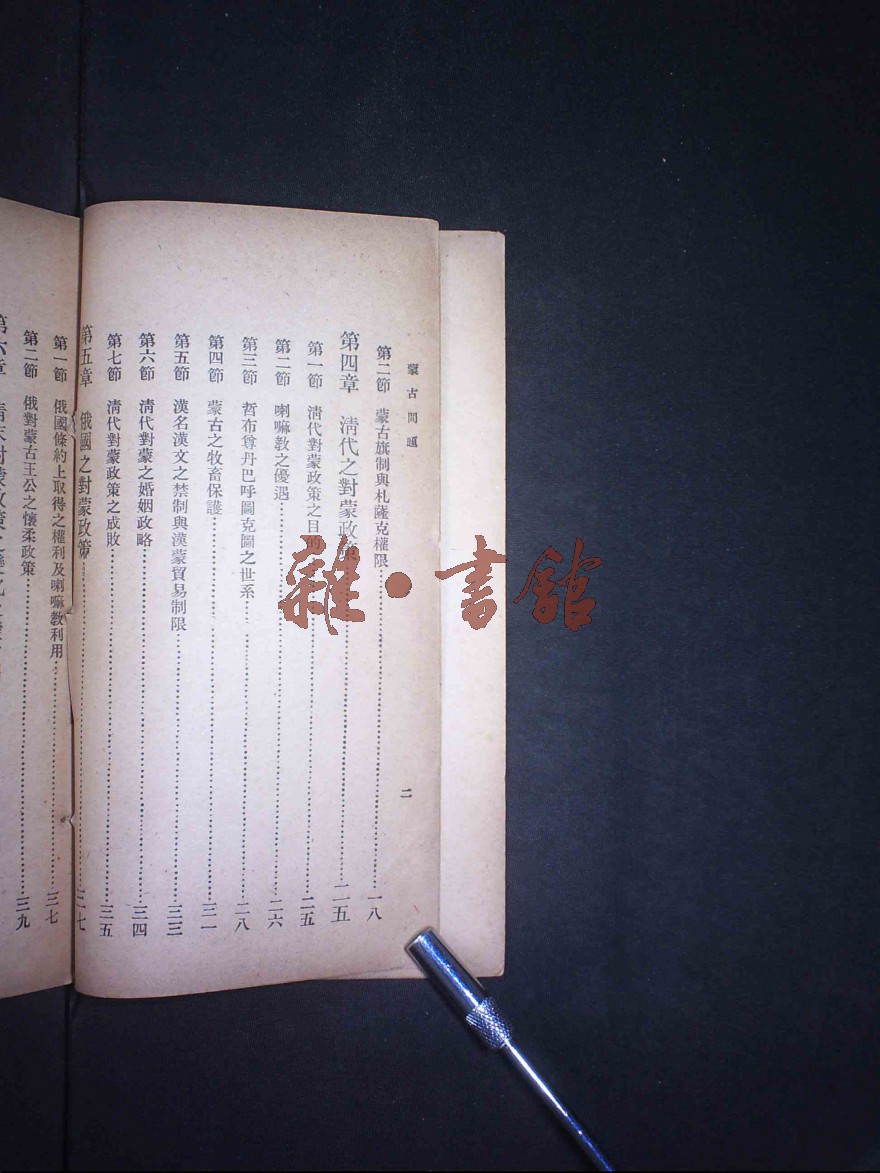 蒙古問題
二
第二節 蒙古旗制與札薩克權限……一八
第四章 清代之對蒙政策……二五
第一節 清代對蒙政策之目的……二五
第二節 喇嘛教之優遇……二六
第三節 哲布尊丹巴呼圖克圖之世系……二八
第四節 蒙古之牧畜保護……三一
第五節 漢名漢文之禁制與漢蒙貿易制限……三三
第六節 清代對蒙之婚姻政略……三四
第七節 清代對蒙政策之成敗……三五
第五章 俄國之對蒙政策……三七
第一節 俄國條約上取得之權利及喇嘛教利用……三七
第二節 俄對蒙古王公之懷柔政策……三九
第六章 清末對蒙政策之變化
雜·書館